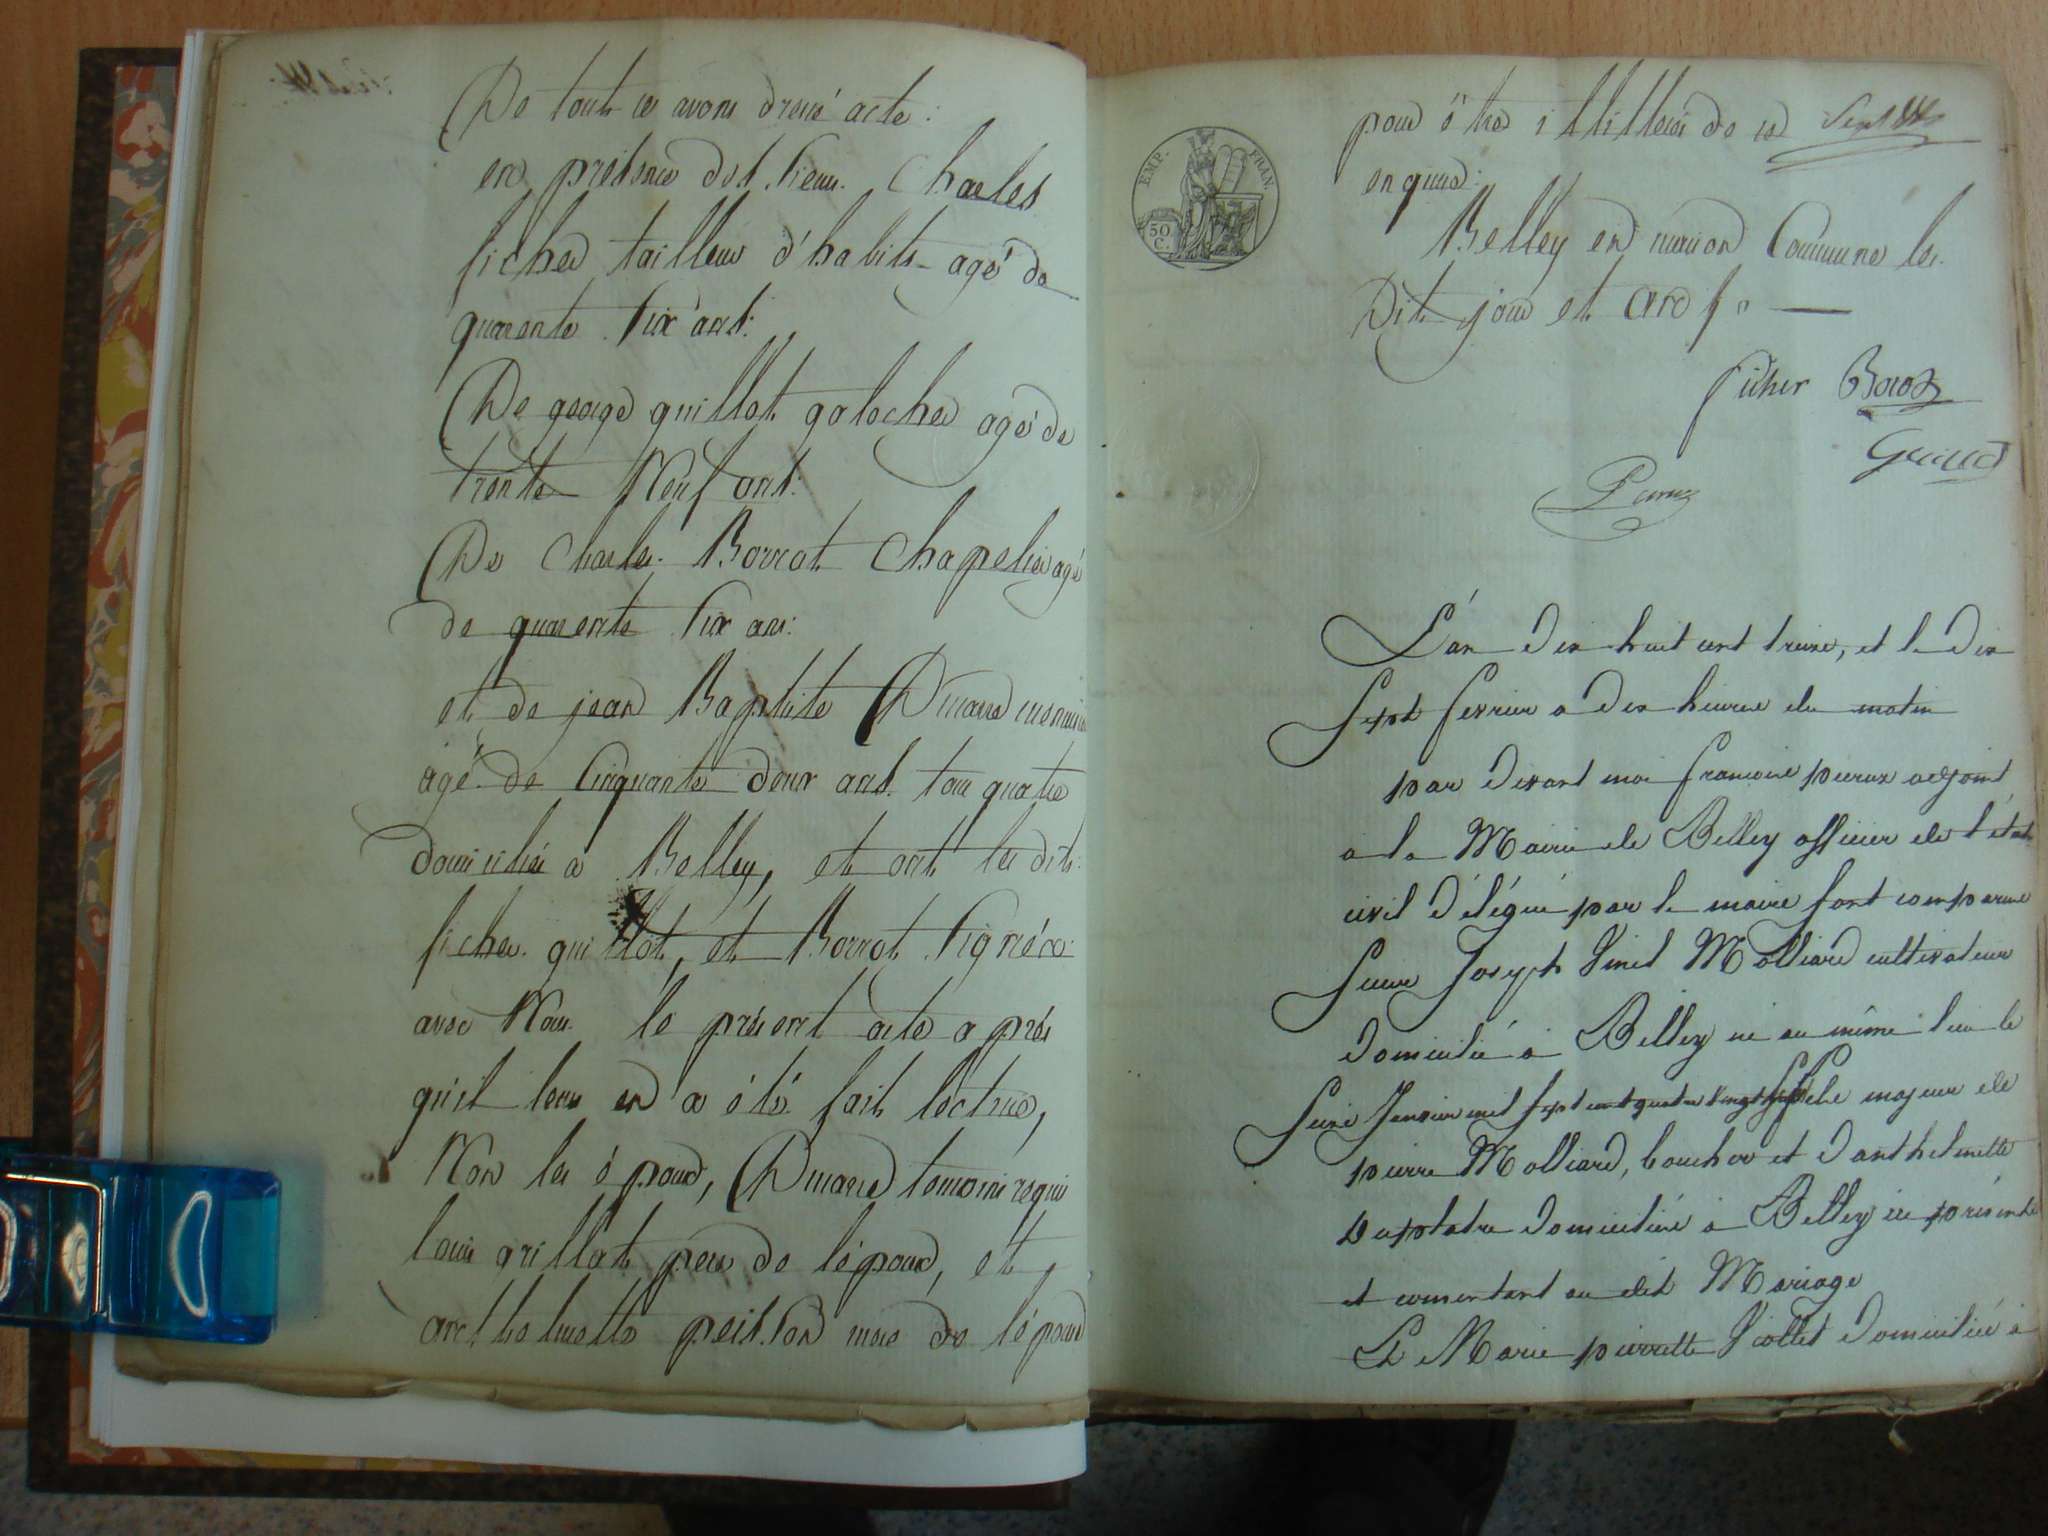 De tout ce avons dressé acte:
en présence des Sieurs Charles
ficher tailleur d'habits agé de
quarente Six ans:
De george guillot galocher agé de
trente Neuf ans:
De Charles Borrot Chapelier agé
de quarente Six ans:
et de jean Baptiste Dmare
agé de Cinquante deux ans tous quatre
domiciliés à Belley, et ont les dits
ficher guillot, et Borrot Signéés
avec Nous le présent acte après
qu'il leur en a été fait lecture,
Non les époux, Dmare temoins requis
louis grillot pere de lépoux, et
anthelmette peisson mere de lépoux
pour être illitterés de ce
enquis:
Sept
EMP. FRAN.
50 C.
Belley en maison Commune les
Dits jour et an
ficher Borot
Peruz
L'an dix huit cent treize, et le dix
Sept fevrier a dix heures du matin
par devant moi francoise adjoint
a la Mairie de Belley officier de l'état
civil délégué par le maire sont comparus
Sieur Joseph Vinet Molliard cultivateur
domicilié à Belley né au même lieu le
Seize Janvier mil sept cent quatre vingt majeur de
pierre Molliard, boucher et d'anthelmette
domiciliés à Belley ici présents
et consentant au dit Mariage
Et Marie pierrette Viollet domiciliée à